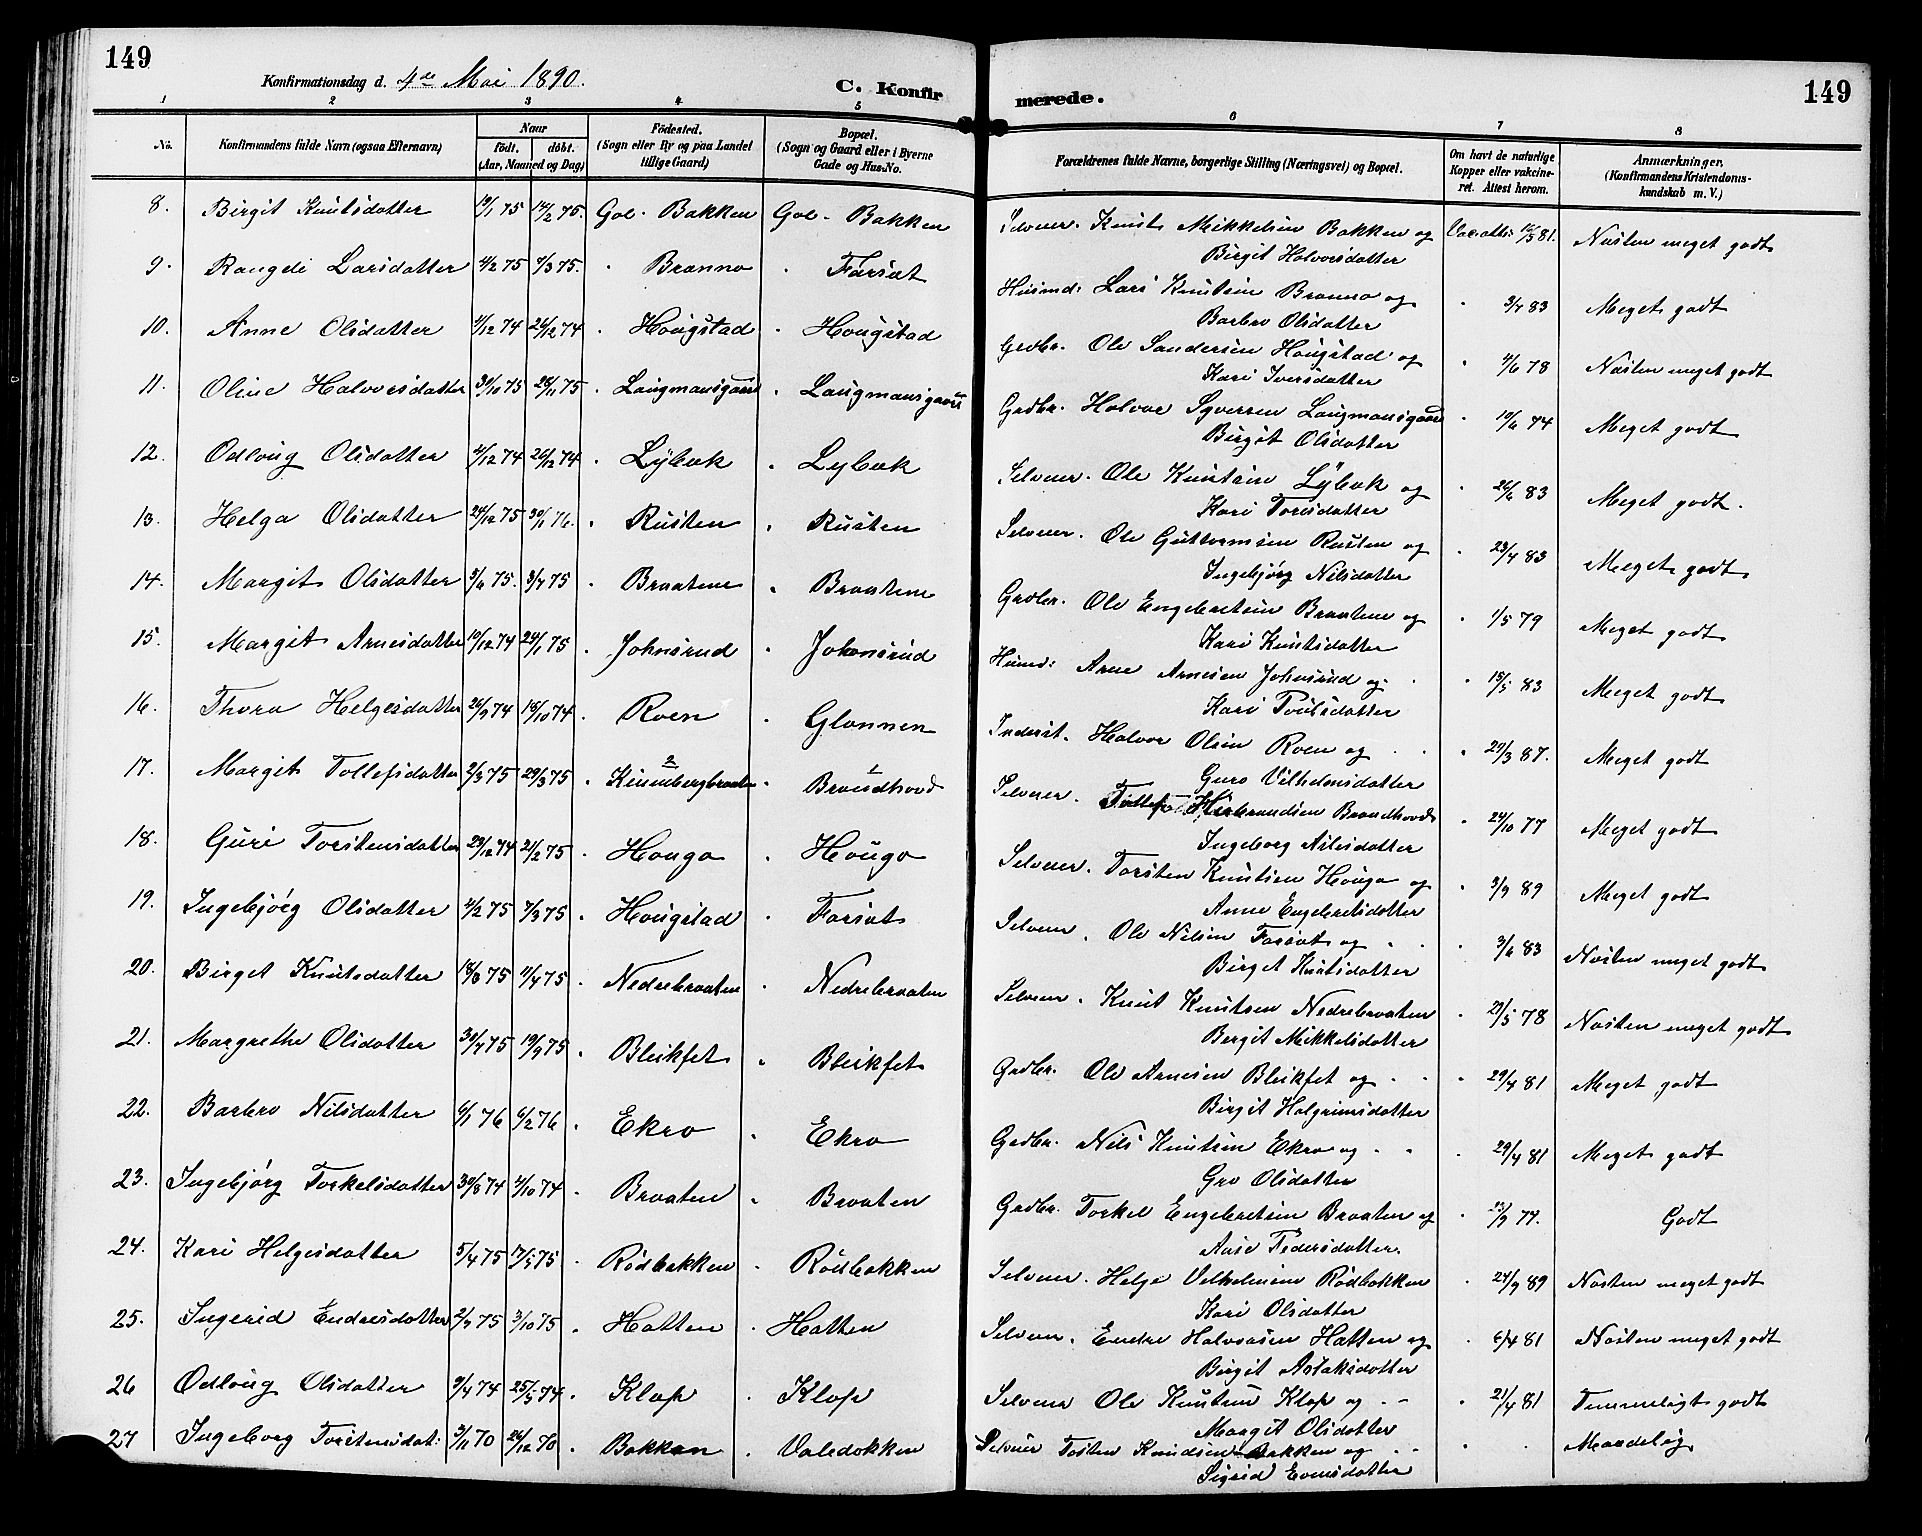 149
Konfirmationsdag d. 4de Mai 1890.
C. Konfir
merede.
149
1 2 3 4 5 6 7 8
No.
Konfirmandens fulde Navn (ogsaa Efternavn)
Naar
födt. döbt.
(Aar, Maaned og Dag)
Födested.
(Sogn eller By og paa Landet
tillige Gaard)
Bopæl.
(Sogn og Gaard eller i Byerne
Gade og Hus-No.
Forældrenes fulde Navne, borgerlige Stilling (Næringsvei) og Bopæl.
Om havt de naturlige
Kopper eller vakcine-
ret. Attest herom.
Anmærkninger.
(Konfirmandens Kristendoms-
kundskab m. V.)
8. Birgit Knutsdatter 19/1 75 14/2 75. Gol - Bakken Gol - Bakken Selveier. Knut Mikkelsen Bakken og 81. Næsten meget godt
Birgit Halvorsdatter
9. Rangdi Larsdatter 4/2 75 7/3 75. " Branno " Farsæt Husmd: Lars Knutsen Branno og " 3/4 83 Meget godt
Barbro Olsdatter
10. Anne Olsdatter 4/12 74 26/12 74 " Hougstad " Hougstad Grdbr. Ole Sandersen Hougstad og " 4/6 78 Næsten meget godt
Kari Iversdatter
11. Oline Halvorsdatter 31/10 75 28/11 75 " Laugmansgaard " Laugmansgaard Grdbr. Halvor Syversen Laugmansgaard " 10/6 74 Meget godt
Birgit Olsdatter
12. Odloug Olsdatter 4/12 74 26/12 74 " Lybæk " Lybæk Selveier. Ole Knutsen Lybæk og " 26/6 83 Meget godt.
Kari Toresdatter
13. Helga Olsdatter 24/12 75 30/1 76. " Rusten " Rusten Selveier. Ole Guttormsen Rusten og " 23/4 83 Meget godt
Ingebjørg Nilsdatter
14. Margit Olsdatter 5/6 75. 3/4 75 " Braatene " Braatene Grdbr. Ole Engebretsen Braatene og " 1/5 79 Meget godt
Kari Knutsdatter
15. Margit Arnesdatter 10/12 74 24/1 75 " Johnsrud " Johnsrud Husmd: Arne Arnesen Johnsrud og " 18/5 83 Meget godt
Kari Poulsdatter
16. Thora Helgesdatter 26/9 74 18/10 74 " Roen " Glonnen Inderst. Halvor Olsen Roen og " 29/3 87. Meget godt
Guro Vilhelmsdatter
17. Margit Tollefsdatter 2/3 75 29/3 75 " 2 Kinnebergbraaten " 1 Brandhovd Selveier. Tollef Brandhovd " 29/10 77 Meget godt
Ingeborg Nilsdatter
18. Guri Torstensdatter 29/12 74 21/2 75 " Houga " Houga Selveier. Torsten Knutsen Houga og " 3/9 89 Meget godt
Anne Engebretsdatter
19. Ingebjørg Olsdatter 4/2 75 7/3 75 " Hougstad " Farsæt Selveier. Ole Nilsen Farsæt og " 3/6 83 Næsten meget godt
Birget Knutsdatter
20. Birget Knutsdatter 18/3 75 11/4 75 " Nedrebraaten " Nedrebraaten Selveier. Knut Knutsen Nedrebraaten " 21/5 78 Næsten meget godt
Bergit Mikkelsdatter
21. Margrethe Olsdatter 30/7 75 19/9 75 " Bleikfet " Bleikfet Grdbr. Ole Arnesen Bleikfet og " 29/4 81 Meget godt
Birgit Halgrimsdatter
22. Barbro Nilsdatter 6/1 76 6/2 76 " Ekro " Ekro Grdbr. Nils Knutsen Ekro og " 29/4 81 Meget godt
Gro Olsdatter
23. Ingebjørg Torkelsdatter 30/8 74 4/10 74 " Braaten " Braaten Grdbr. Torkel Engebretsen Braaten og " 23/9 77. Godt
Aase Pedersdatter.
24. Kari Helgesdatter 5/4 75 17/5 75 " Rödbakken " Rödbakken Selveier. Helge Velhelmsen Rödbakken " 24/9 89 Næsten meget godt
Kari Olsdatter
25. Ingerid Endresdatter 2/9 75 3/10 75 " Hatten " Hatten Selveier. Endre Halvorsen Hatten og " 6/4 81 Næsten meget godt
Birgit Aslaksdatter
26 Odloug Olsdatter 9/4 74 25/5 74 " Klop " Klop Selveier Ole Knutsen Klop og " 21/4 81 Temmeligt godt
Margit Olsdatter
27 Ingeborg Torstensdat: 3/11 70 26/12 70 " Bakken " Valdokken Selveier Tosten Knudsen Bakken og " Maadelig
Sigrid Evensdatter